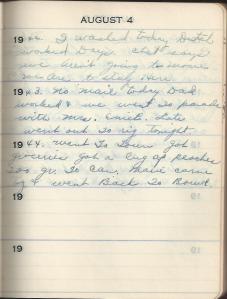 AUGUST 4
1942. I washed today, Dutch
worked Days. Chet says
we aren't going to move
we are to stay here.
1943. No mail today Dad
worked & we went to parade
with Mrs.
went out to rig tonight.
1944. went to Town got
groceries got a Lug of peaches
to Can. Marie came
& went Back to
19
19